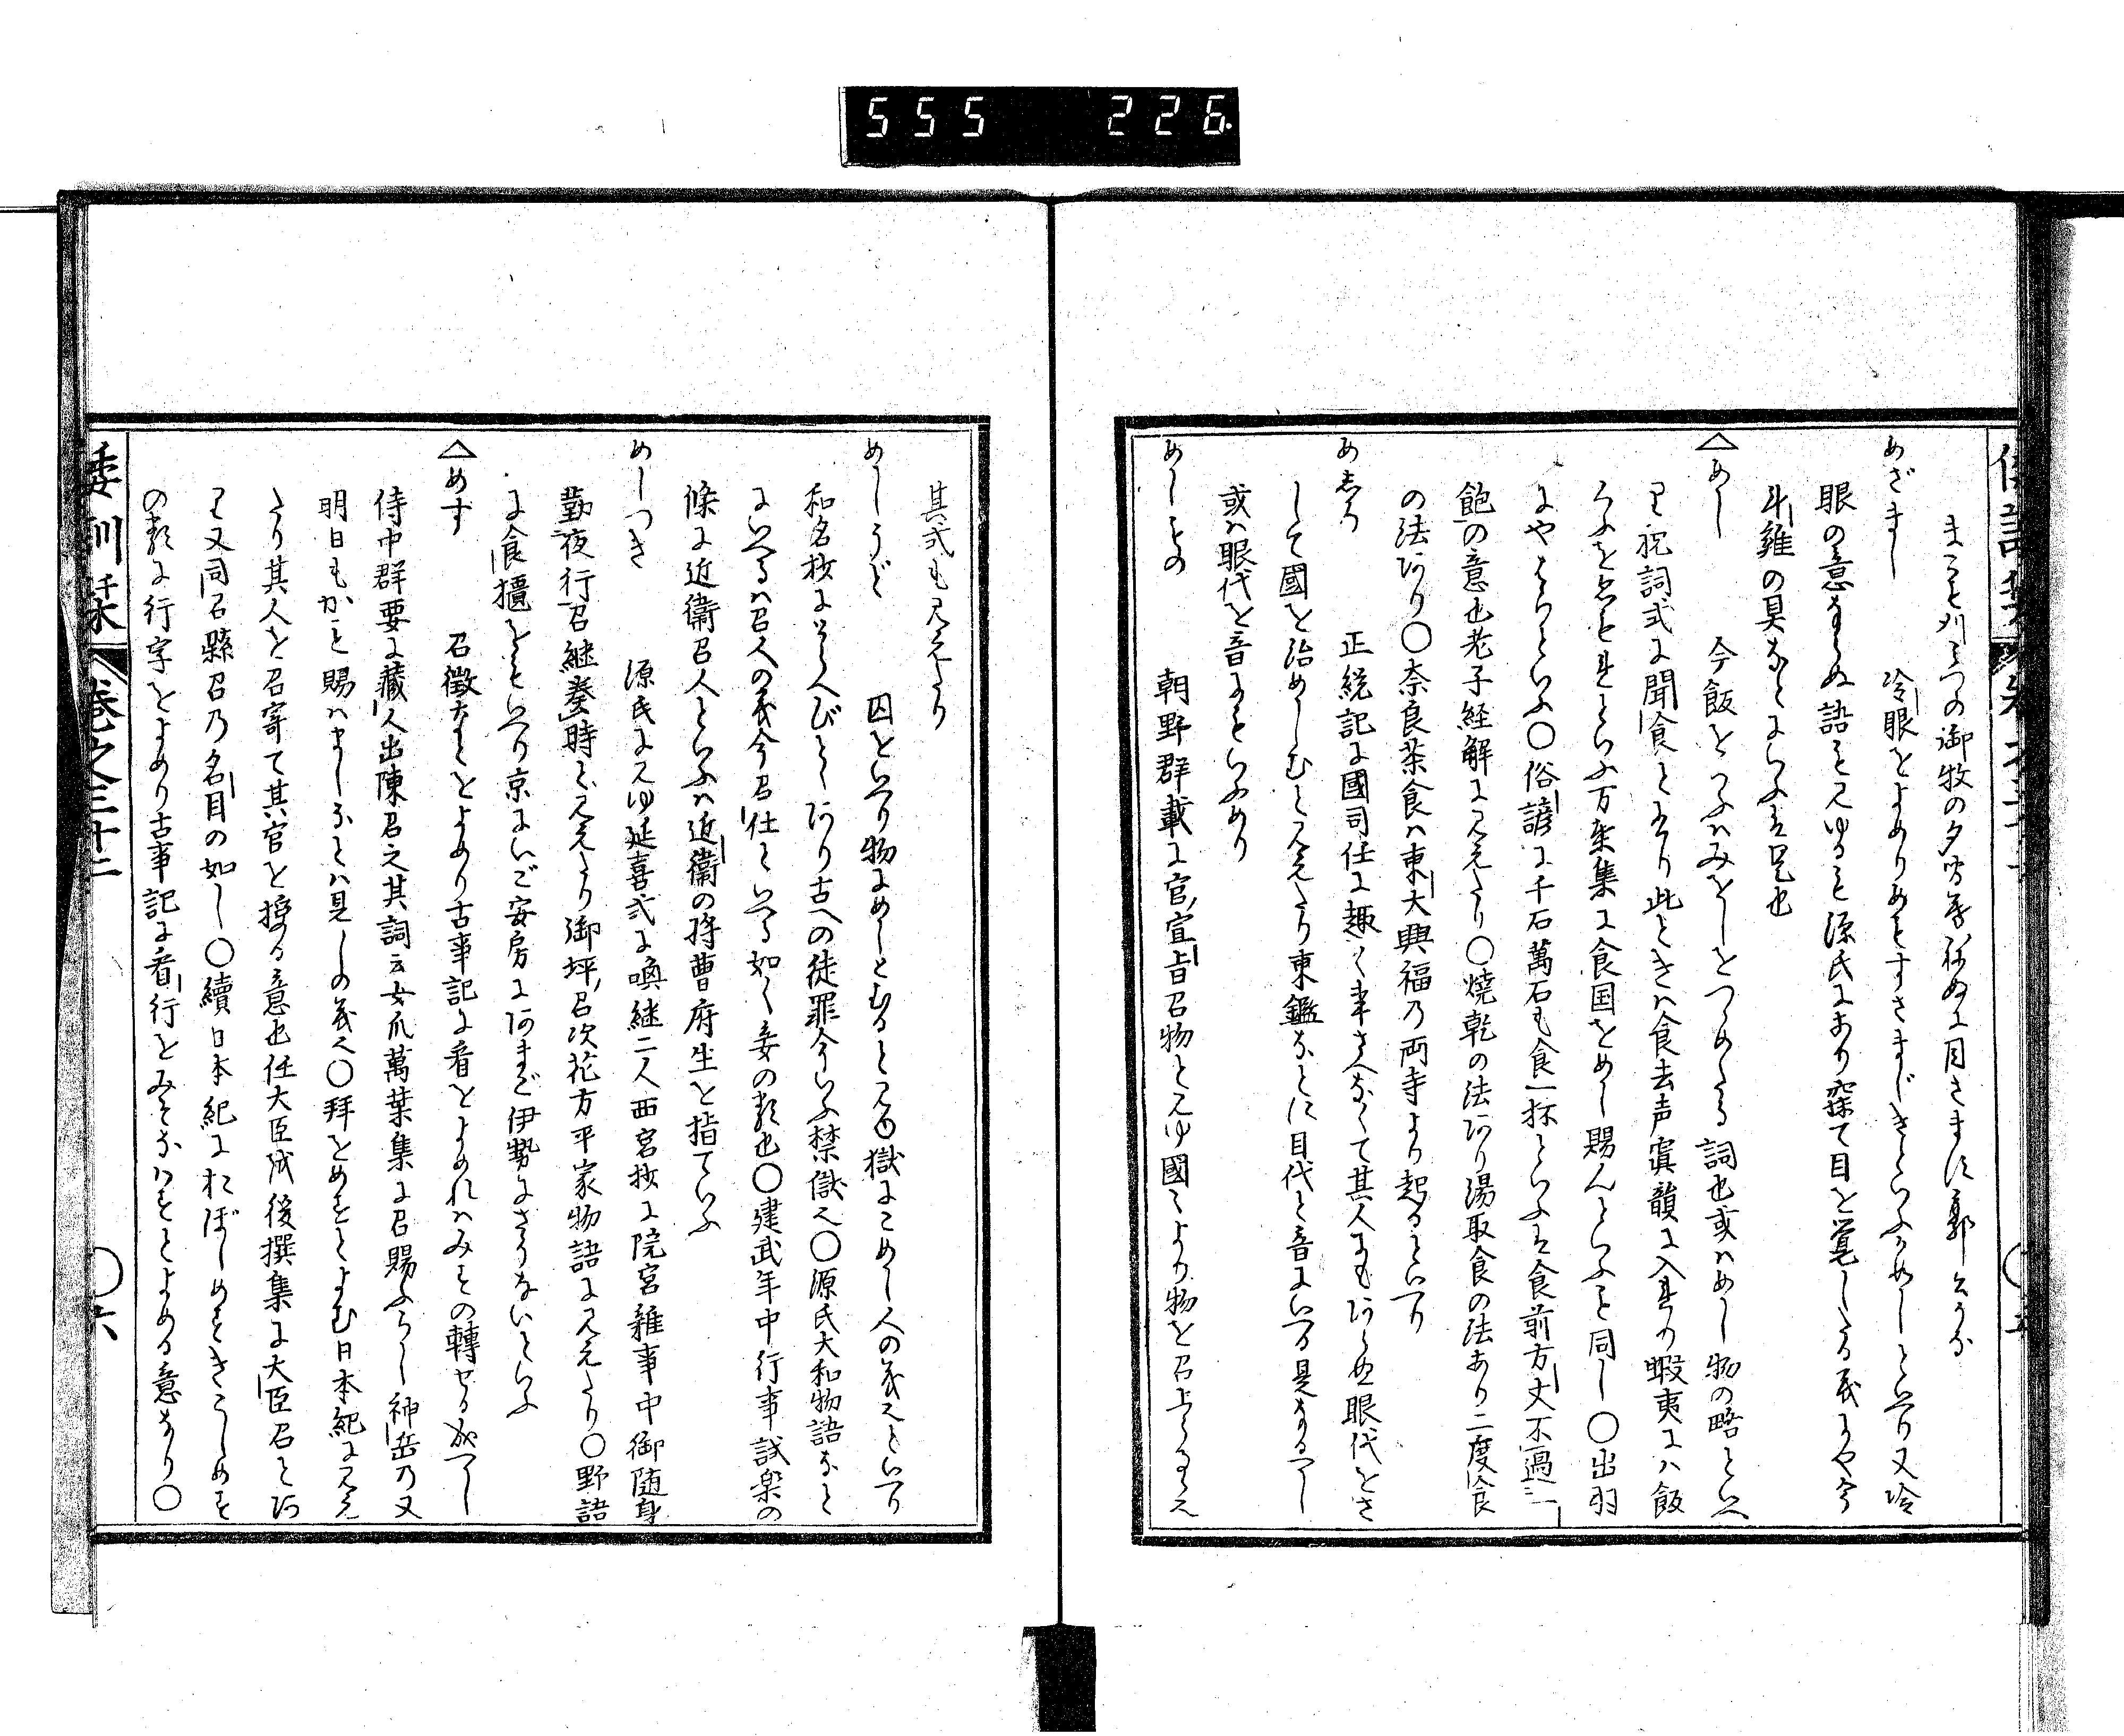 555 226
まこも刈みつの御牧の夕間暮ねぬに目さます郭公かな
めざまし 冷眼をよめりめもすさまじきといふかめしといへり又冷
眼の意ならぬ語も見ゆるも源氏にあり寐て目を覚したる義にや今
斗雞の具などにいふも是也
△めし 今飯をいふハみをしをつめたる詞也或ハめし物の略といへ
り祝詞式に聞食とあり此ときハ食去声寘韻に入るの蝦夷にハ飯
万葉集に食国をめし賜んといふも同し〇出羽
にやはらといふ〇俗諺に千石萬石も食一杯といふも食前方丈不過一
飽の意也老子経解に見えたり〇焼乾の法あり湯取食の法あり二度食
の法あり〇奈良茶食ハ東大興福の両寺より起るといへり
めしろ 正統記に國司任に趣く事さへなくて其人にもあらぬ眼代をさ
して國を治めしむと見えたり東鑑などに目代と音にいへる是なるべし
或ハ眼代を音にもいふめり
めしもの 朝野群載に官宣旨召物と見ゆ國々より物を召上らるゝ也
其式も見えたり
めしうど 囚をいへり物にめしとむると見ゆ獄にこめし人の義也といへり
和名抄にとらへびとゝあり古への徒罪今いふ禁獄也〇源氏大和物語なと
にいへるハ召人の義今召仕といへる如く妾の類也〇建武年中行事試楽の
條に近衞召人といふハ近衞の将曹府生を指ていふ
めしつき 源氏に見ゆ延喜式に喚継二人西宮抄に院宮雜事中御随身
勤夜行召継奏時ど見えたり御坪召次花方平家物語に見えたり〇野語
に食櫃をもいへり京にいご安房にあまご伊勢にさうないといふ
△めす 召徴などをよめり古事記に看をよめれハみすの轉せる成べし
侍中群要に藏人出陳召之其詞云女爪萬葉集に召賜ふらし神岳の又
明日もかも賜ハましなとハ見しの義也〇拜をめすとよむ日本紀に見え
たり其人を召寄て其官を授る意也任大臣成後撰集に大臣召とあ
り又司召縣召の名目の如し〇續日本紀におぼしめすきこしめす
の類に行字をよめり古事記に看行をみそなハすとよめる意なり〇
倭訓栞 巻之三十二 〇六